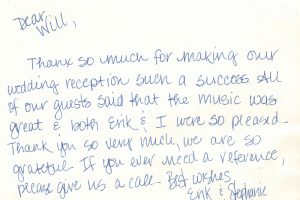 Dear
Will,
Thank so much for making our
wedding reception such a success. All
of our guests said that the music was
great & both Erik & I were so pleased.
Thank you so very much, we are so
grateful. If you ever need a reference,
please give us a call. Best wishes,
Erik & Stephanie